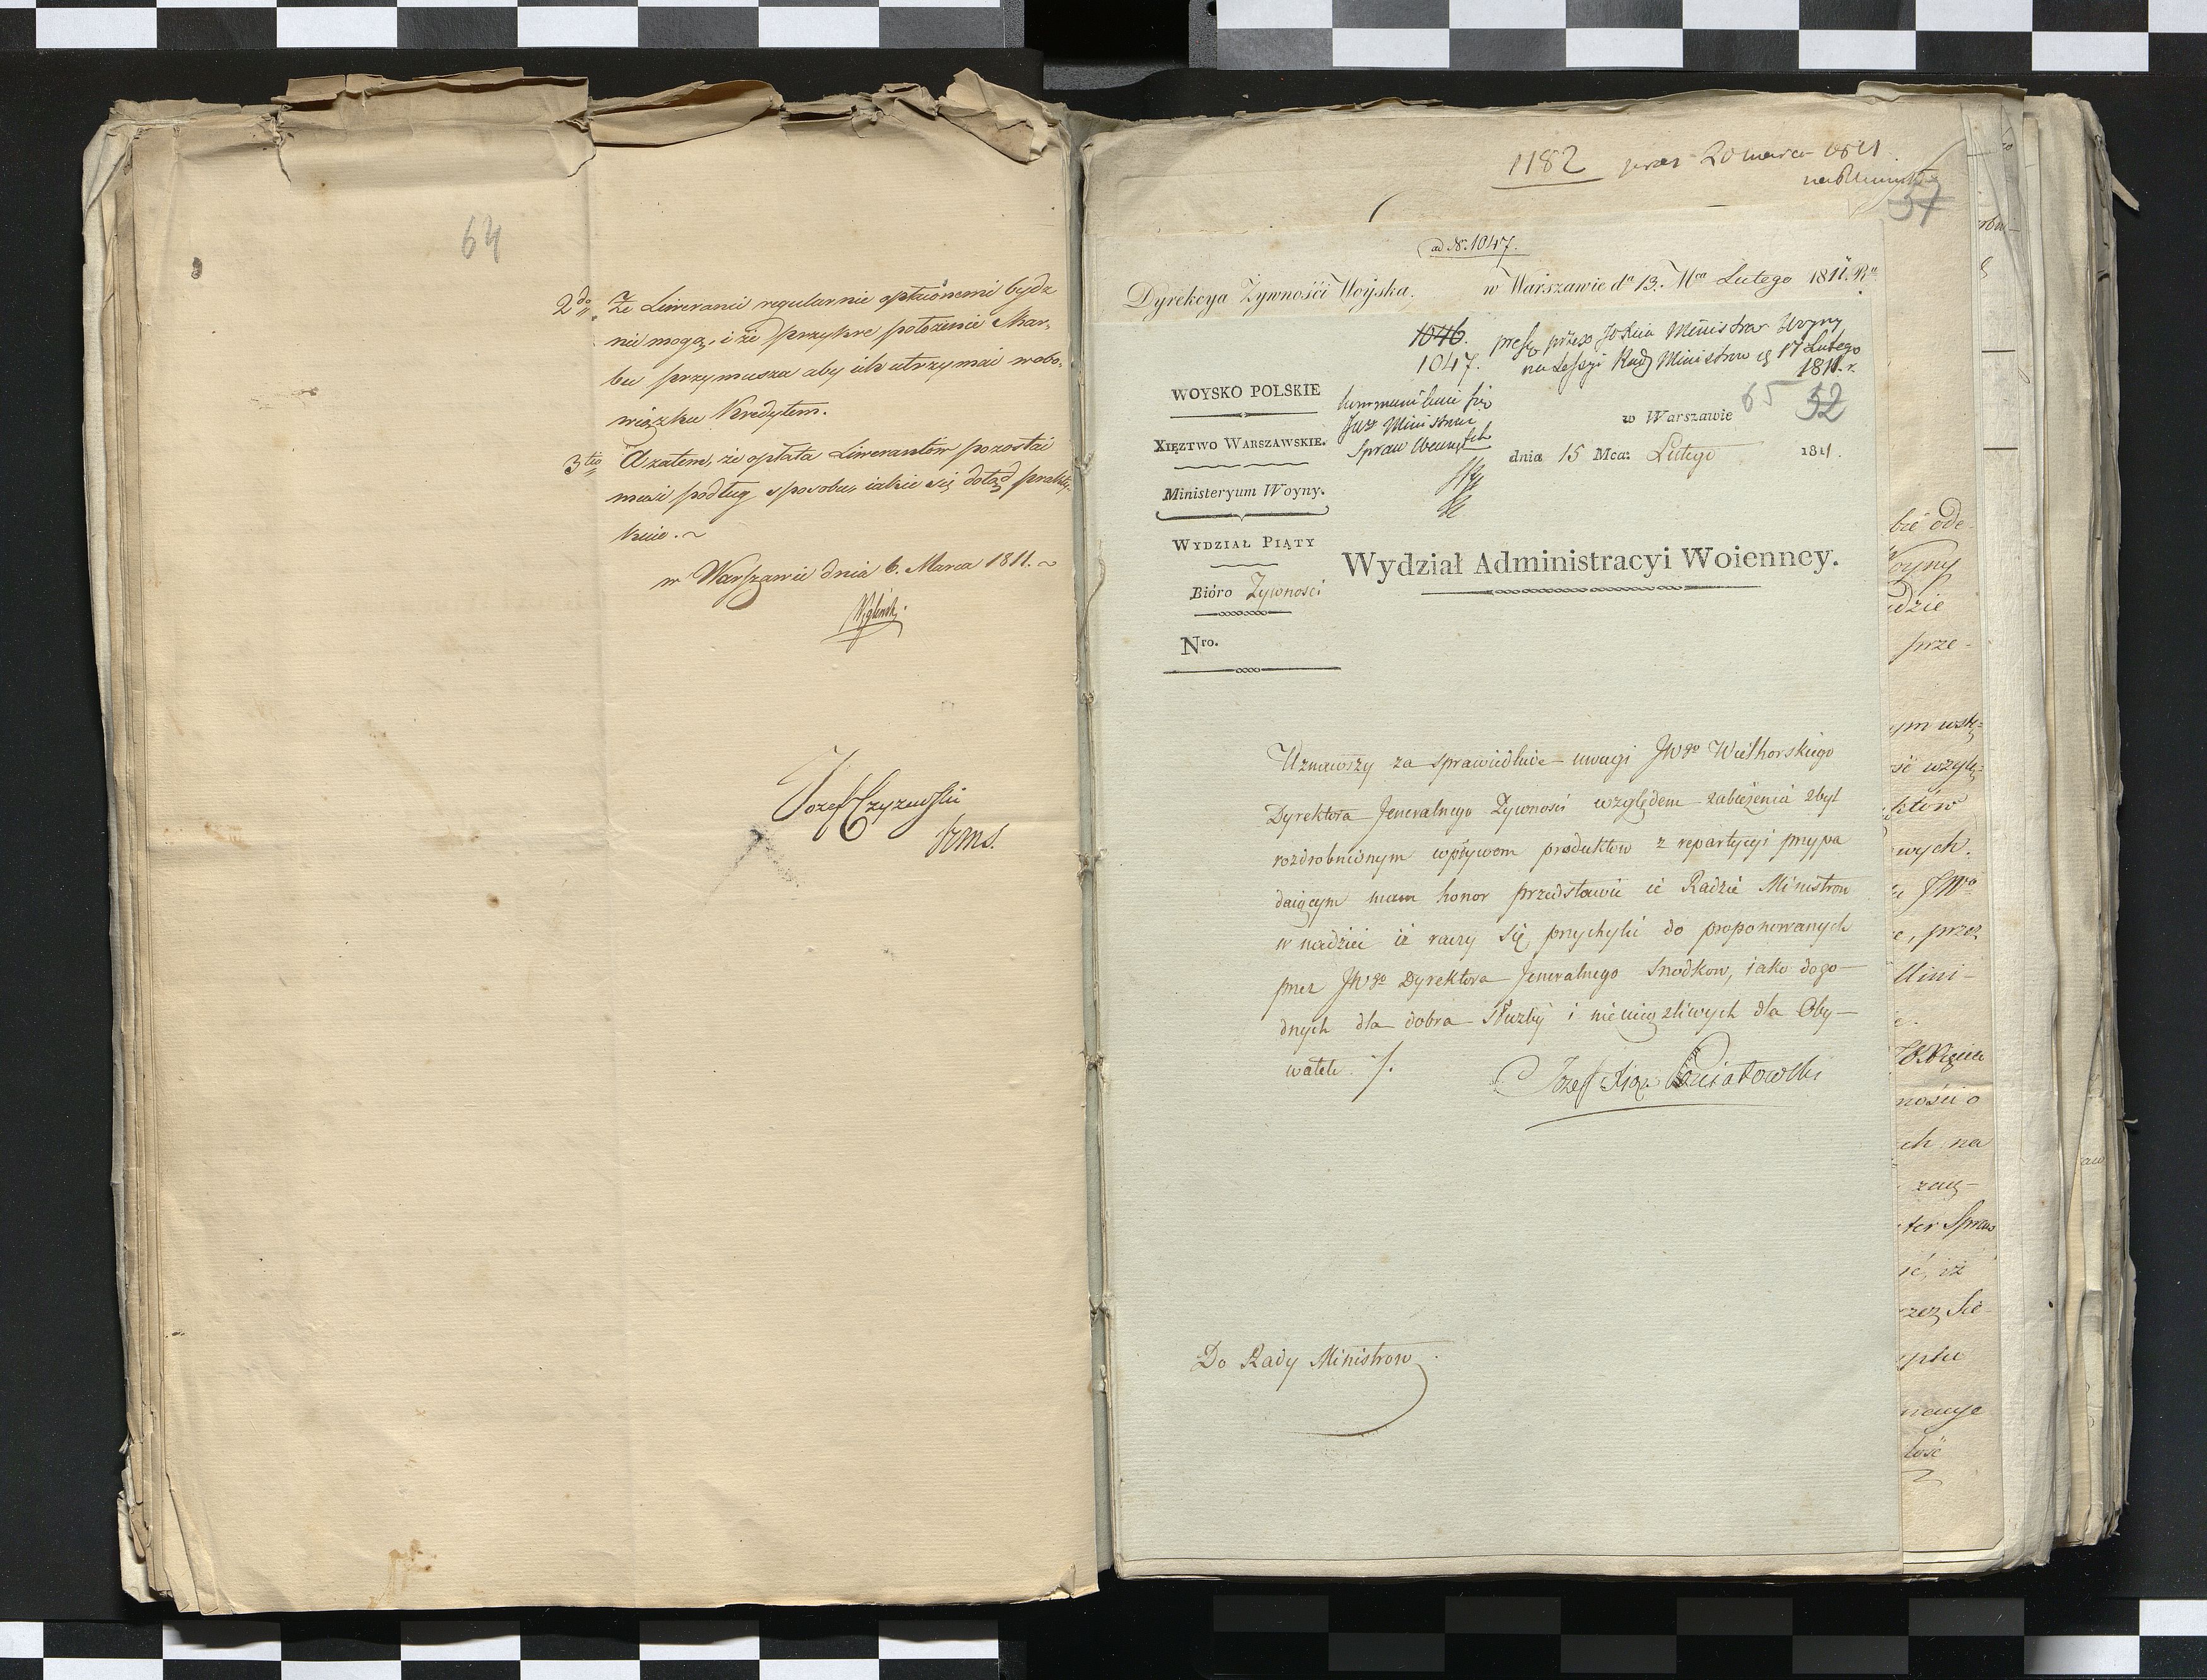 64
2do Że Liweranci regularnie opłaconemi bydź
nie mogą, i że przykre położenie Skar-
bu przymusza aby ich utrzymać w obo-
wiązku kredytem.
3tio A zatem, że opłata Liwerantów pozostać
musi podług sposobu, iakie się dotąd prakty-
kuie.~
w Warszawie dnia 6. Marca 1811.~
Węgleński
Jozef Czyzewski
1182 20 marca 1811
57
ad N. 1047.
Dyrekcya Żywności Woyska. w Warszawie da 13. Mca Lutego 1811. Ru
1046. pres. przez JO Xcia Ministra Woyny
1047. na Sessyi Rady Ministrow d 17 Lutego
1811. r.
WOYSKO POLSKIE
65 52
w Warszawie
Ministra
XIĘZTWO WARSZAWSKIE.
Spraw Wewnętch
dnia 15 Mca: Lutego 1811.
Ministeryum Woyny.
WYDZIAŁ PIĄTY
Wydział Administracyi Woienney.
Bióro Żywności
Nro.
Uznawszy za sprawiedliwe uwagi JWgo Wielhorskiego
Dyrektora Jeneralnego Żywności względem zabieżenia zbyt
rozdrobnionym wpływom produktow z repartycyi przypa
daiącym mam honor przedstawić ie Radzie Ministrow
w nadziei iż raczy się przychylić do proponowanych
przez JWgo Dyrektora Jeneralnego srzodkow, iako dogo-
dnych dla dobra Służby i nieuciążliwych dla Oby-
wateli ./.
Jozef Xiąże Poniatowski
Do Rady Ministrow